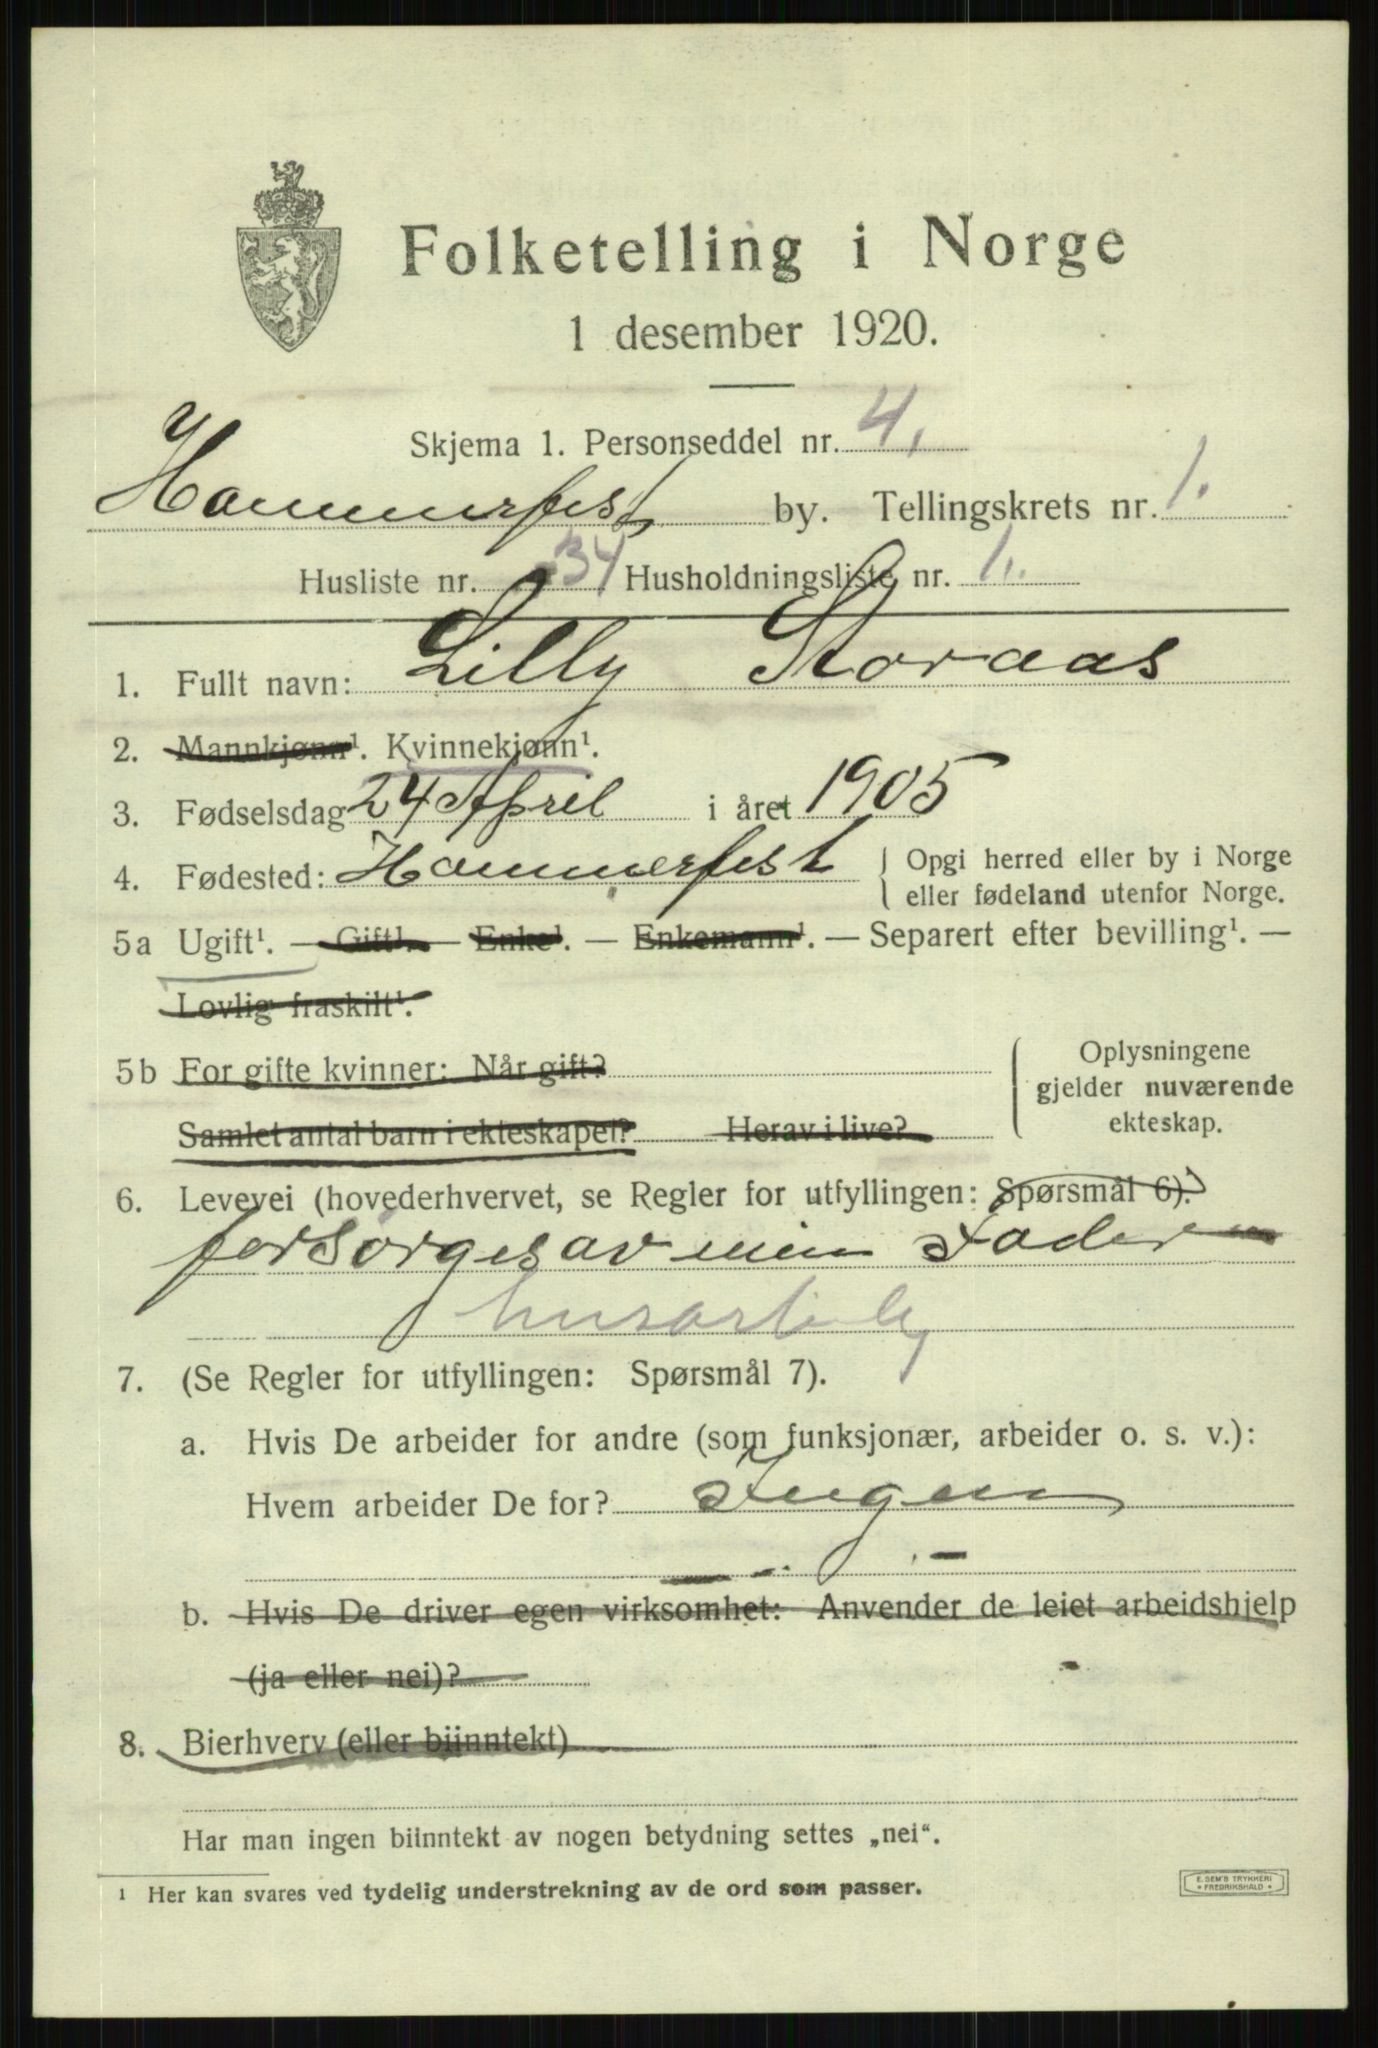 Folketelling i Norge
1 desember 1920.
Skjema 1. Personseddel nr. 4.
Hammerfest by. Tellingskrets nr. 1.
Husliste nr. 34 Husholdningsliste nr. 1.
1. Fullt navn: Lilly Storaas
2. Mannkjønn¹. Kvinnekjønn¹.
3. Fødselsdag 24 April i året 1905
4. Fødested: Hammerfest { Opgi herred eller by i Norge
eller fødeland utenfor Norge.
5a Ugift¹. — Gift¹. — Enke¹. — Enkemann¹. — Separert efter bevilling¹. —
Lovlig fraskilt¹.
5b For gifte kvinner: Når gift?
Samlet antal barn i ekteskapet? Herav i live?
{ Oplysningene
gjelder nuværende
ekteskap.
6. Levevei (hovederhvervet, se Regler for utfyllingen: Spørsmål 6).
forsørges av min Fader
husarbeide
7. (Se Regler for utfyllingen: Spørsmål 7).
a. Hvis De arbeider for andre (som funksjonær, arbeider o. s. v.):
Hvem arbeider De for? Ingen
b. Hvis De driver egen virksomhet: Anvender de leiet arbeidshjelp
(ja eller nei)?
8. Bierhverv (eller biinntekt)
Har man ingen biinntekt av nogen betydning settes „nei“.
¹ Her kan svares ved tydelig understrekning av de ord som passer.
E. SEM'S TRYKKERI
• FREDRIKSHALD •